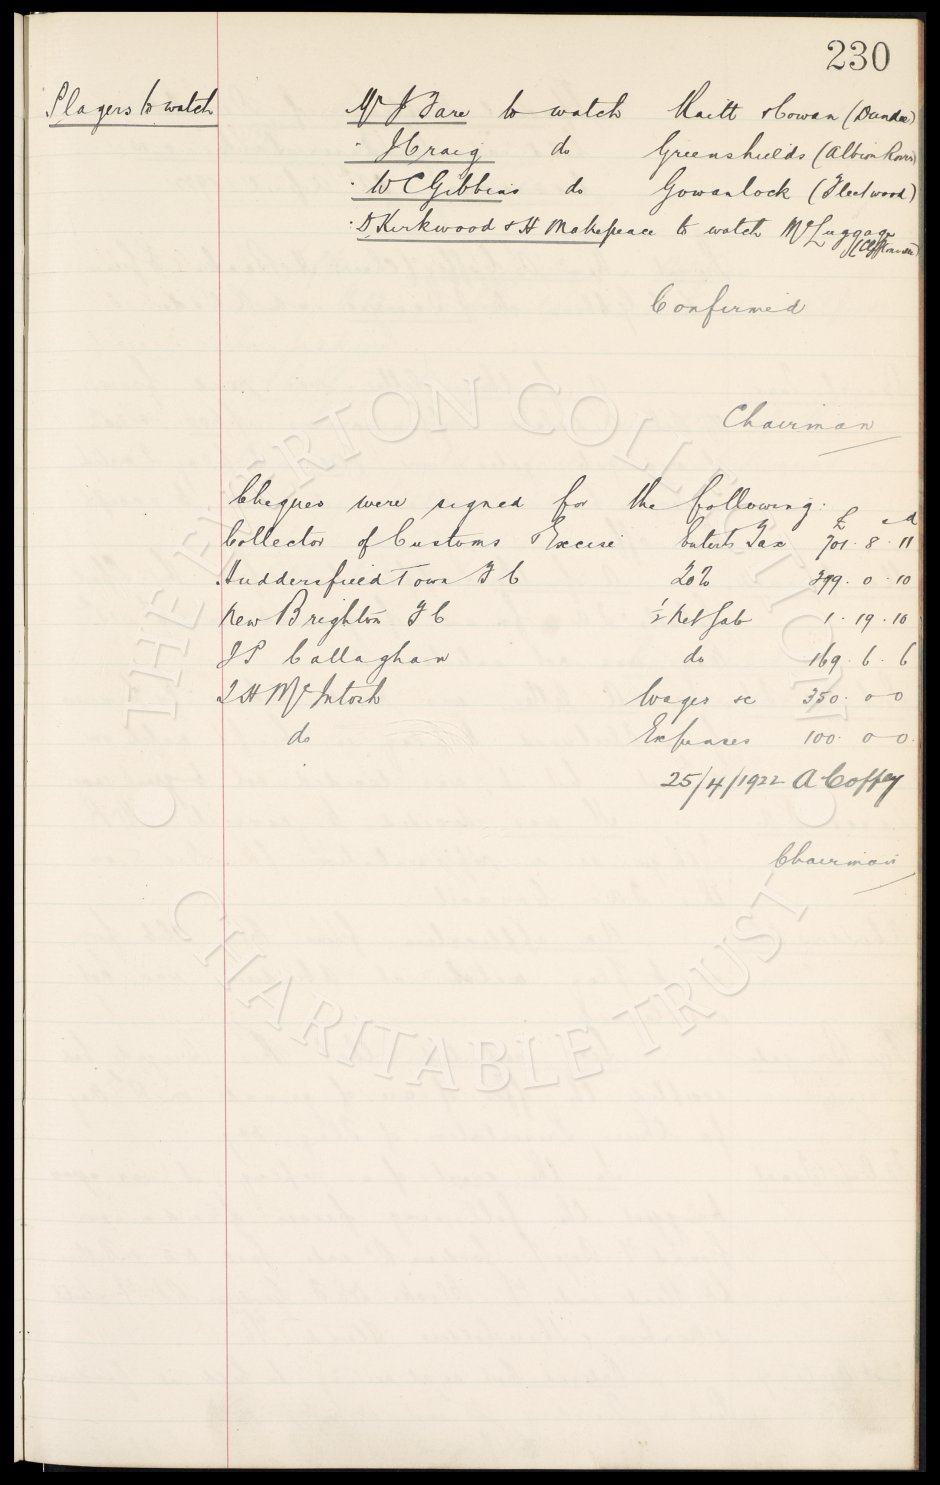 230
Players to watch
Mr J Fare to watch Raitt & Cowan (Dundee)
" J Craig do Greenshields (Albion Rovers)
" W C Gibbins do Gowanlock (Fleetwood)
" D Kirkwood & H Makepeace to watch McLuggage
Confirmed
Chairman
Cheques were signed for the following:
£ s d
Collector of Customs & Excise Entert Tax 701. 8. 11
Huddersfield Town F C 20% 399. 0. 10
New Brighton F C ½ Net Gate 1. 19. 10
J P Callaghan do 169. 6. 6
T H McIntosh Wages &c 350. 0 0
do Expenses 100. 0 0.
25/4/1922 A Coffey
Chairman
© THE EVERTON COLLECTION ©
CHARITABLE TRUST